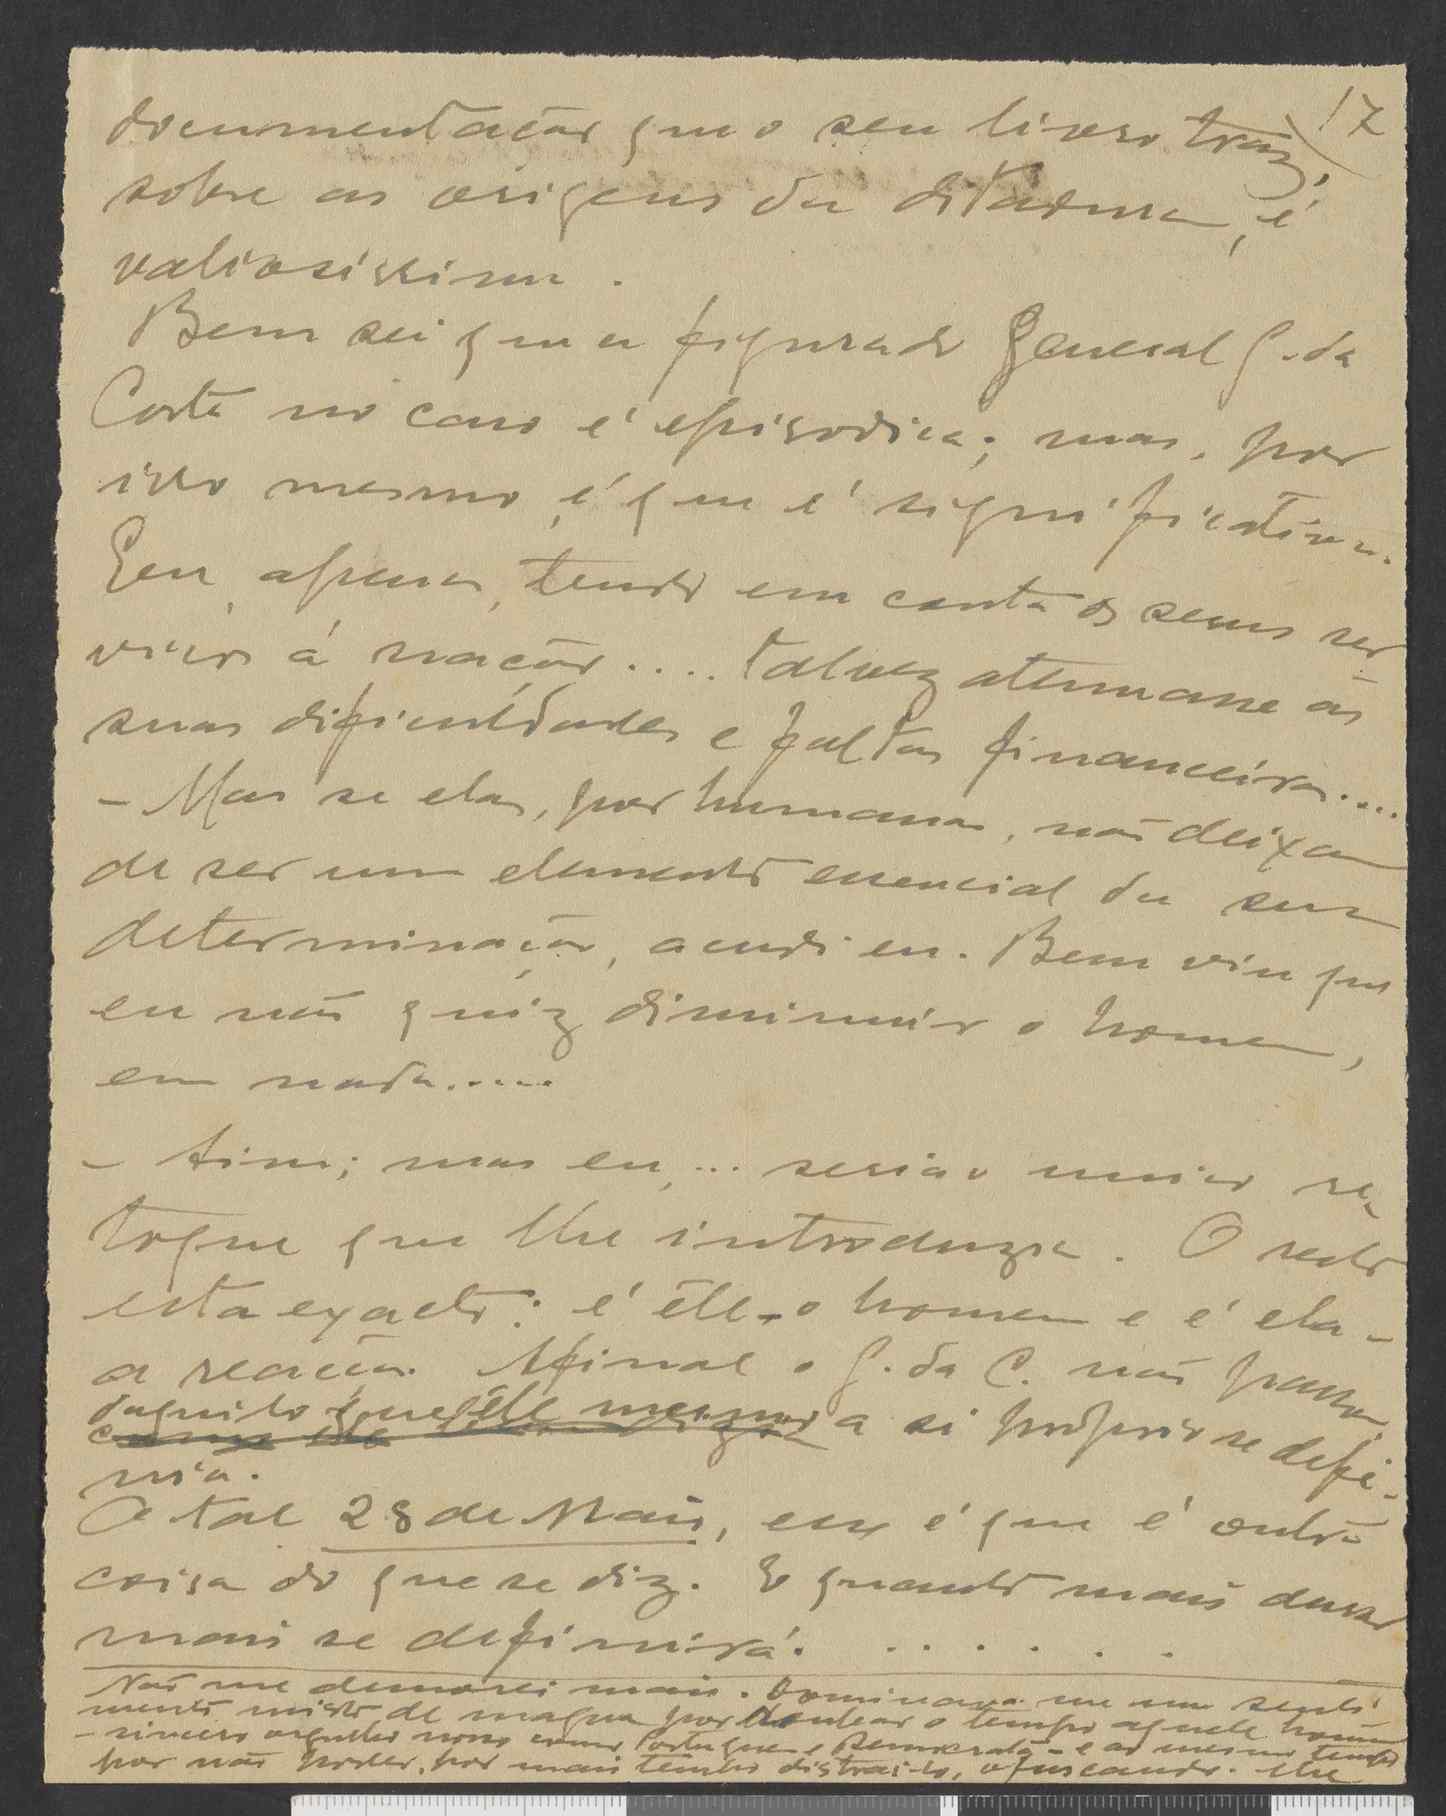 17
documentação que o seu livro traz,
sobre as origens da ditadura, é
valiosissima.
Bem sei que a figura do General G. da
Costa no caso é episodica; mas, por
isso mesmo, é que é significativa.
Eu, apenas, tendo em conta os seus ser-
viços á nação.... talvez atenuasse as
suas dificuldades e faltas financeiras....
- Mas se elas, por humanas, não deixam
de ser um elemento essencial da sua
determinação, acudi eu. Bem viu que
eu não quiz diminuir o homem,
em nada.....
- Sim; mas eu,... seria o unico re-
toque que lhe introduzia. O resto
esta exacto: é êle - o homem e é ela -
a reacção. Afinal o G. da C. não passa
daquilo que êle mesmo a si proprio se defi-
nia.
O tal 28 de Maio, esse é que é outra
coisa do que se diz. E quanto mais durar
mais se definirá. . . . . . .
Não me demorei mais. Dominava-me um senti-
mento misto de magua por roubar o tempo aquele homem
- sincero orgulho nosso como Portuguez e Democrata - e ao mesmo tempo
por não poder, por mais tempo distrai-lo, ofuscando-lhe